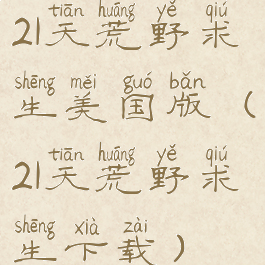 tiān huāng yě qiú
21天荒野求
shēng měi guó bǎn
生美国版（
tiān huāng yě qiú
21天荒野求
shēng xià zài
生下载）